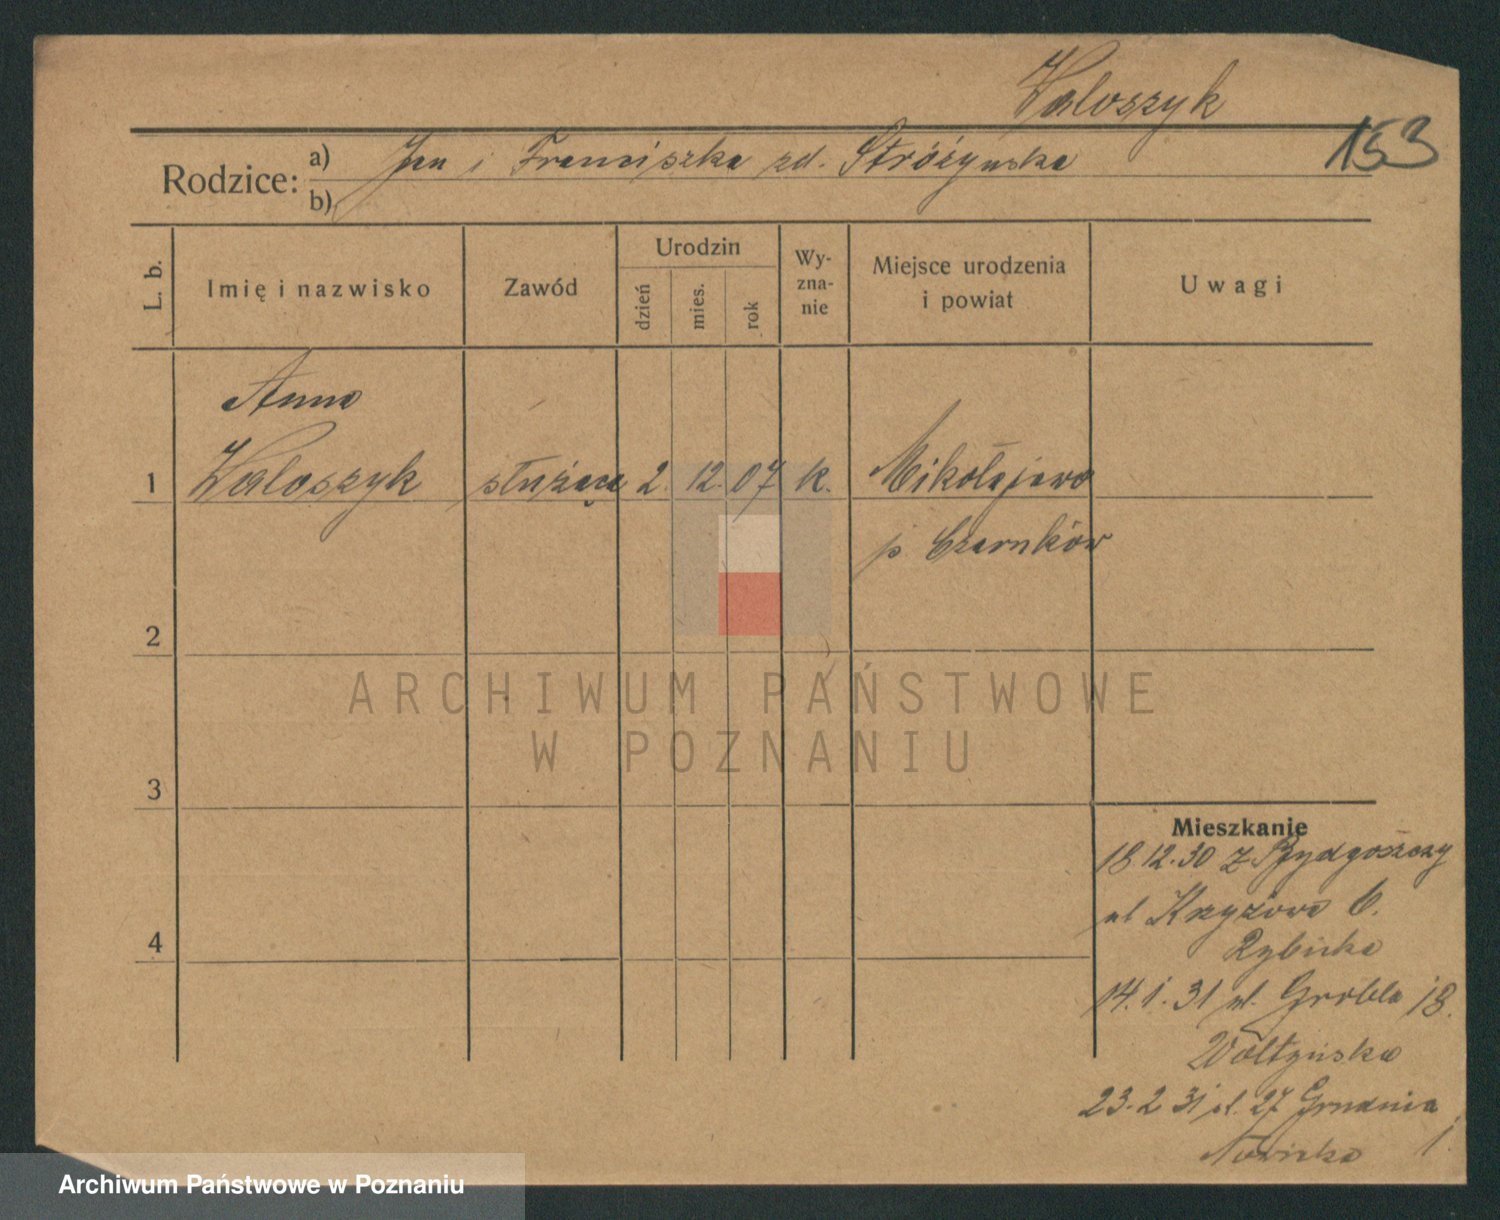 Waloszyk
153
Rodzice: a) Jan i Franciszka zd. Stróżyńska
b)
L. b.
Imię i nazwisko
Zawód
Urodzin
dzień
mies.
rok
Wy-
zna-
nie
Miejsce urodzenia
i powiat
Uwagi
Anna
1 Waloszyk służąca 2. 12. 07 k. Mikołajewo
p. Czarnków
2
ARCHIWUM PAŃSTWOWE
W POZNANIU
3
Mieszkanie
18.12.30 z Bydgoszczy
ul Krzyżowa 6.
4
Rybicka
14.1.31 ul. Grobla 18.
23.2 31 ul. 27 Grudnia
Nowicka 1.
Archiwum Państwowe w Poznaniu